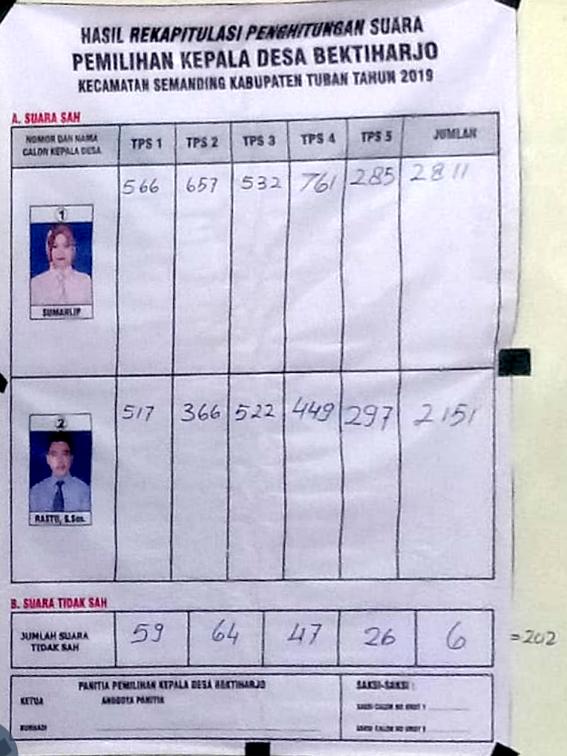 HASIL REKAPITULASI PENGHITUNGAN SUARA
PEMILIHAN KEPALA DESA BEKTIHARJO
KECAMATAN SEMANDING KABUPATEN TUBAN TAHUN 2019
A. SUARA SAH
NOMOR DAN NAMA CALON KEPALA DESA TPS 1 TPS 2 TPS 3 TPS 4 TPS 5 JUMLAH
566 657 532 761 285 2811
1
SUMARLIP
517 366 522 449 297 2151
2
RASTU, S.Sos.
B. SUARA TIDAK SAH
JUMLAH SUARA TIDAK SAH 59 64 47 26 6 =202
PANITIA PEMILIHAN KEPALA DESA BEKTIHARJO
KETUA ANGGOTA PANITIA
SAKSI-SAKSI :
SAKSI CALON NO URUT 1
SAKSI CALON NO URUT